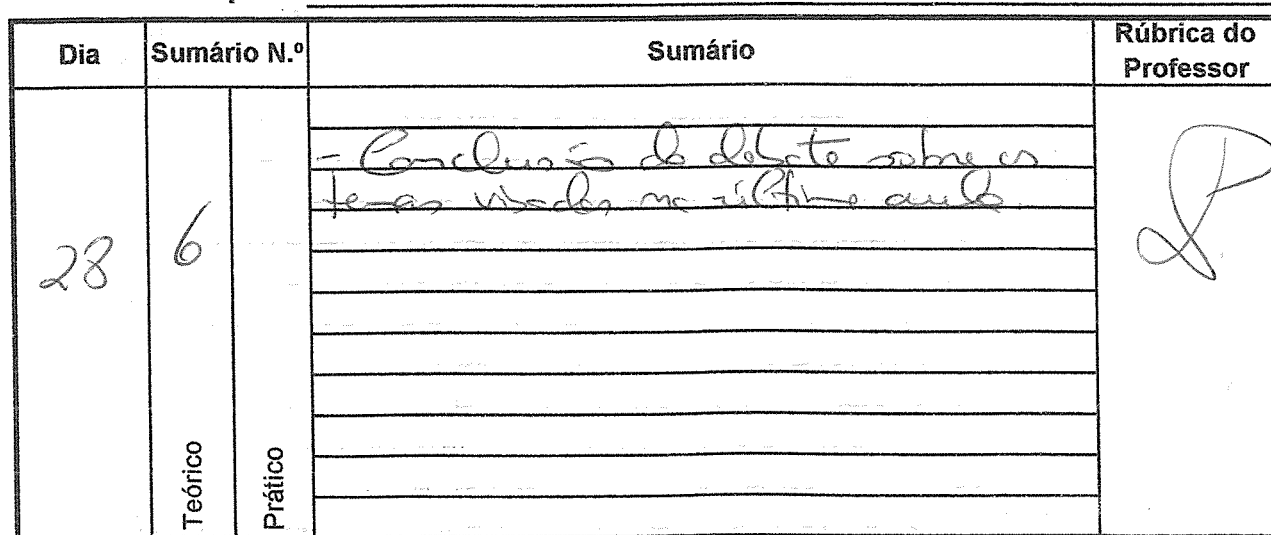 Dia Sumário N.º Sumário Rúbrica do Professor
- Conclusão do debate sobre os
temas visados na última aula
28 6
Teórico Prático